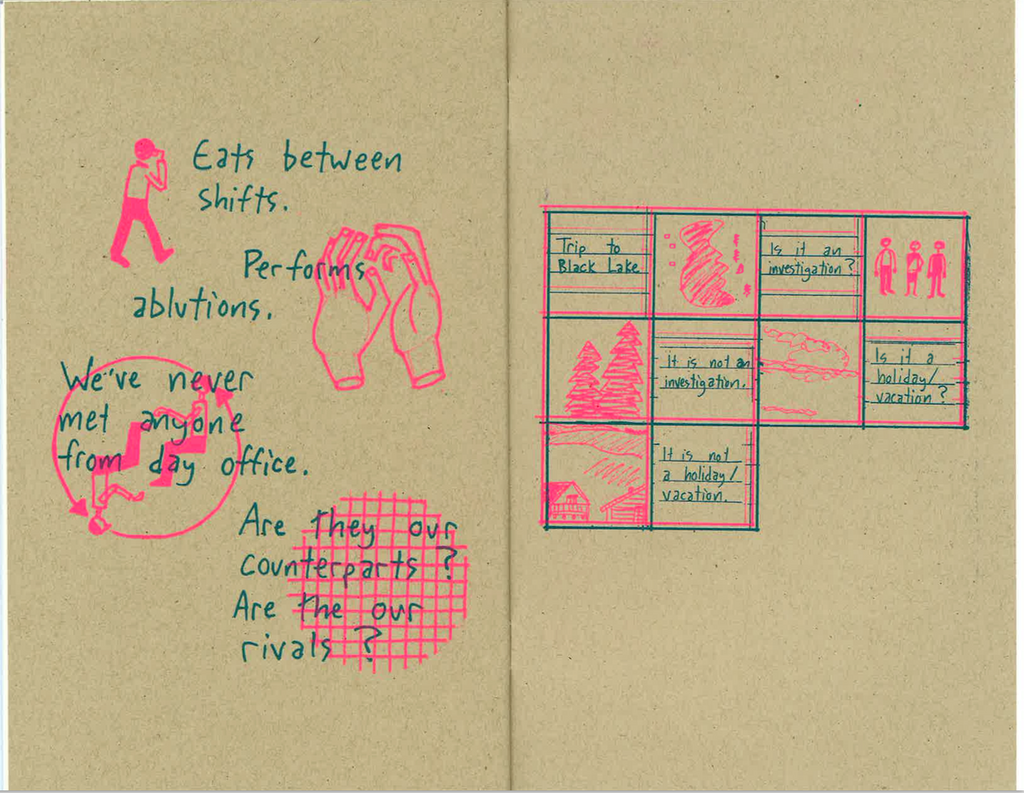 Eats between
shifts.
Performs
ablutions.
We've never
met anyone
from day office.
Are they our
counterparts?
Are the our
rivals?
Trip to
Black Lake
Is it an
investigation?
It is not an
investigation.
Is it a
holiday/
vacation?
It is not
a holiday/
vacation.